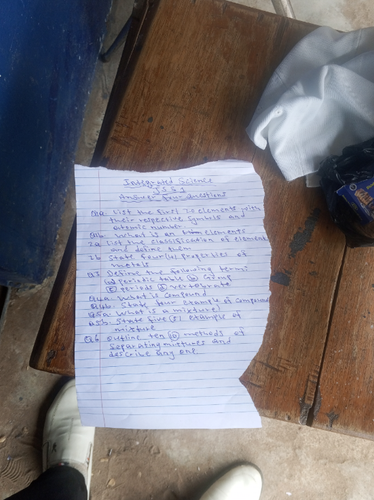 Integrated Science
JSS 1
Answer four questions
Q1a. List the first 20 elements with
their respective symbols and
atomic number
Q1b. What is an elements
2a List the classification of element
and define them
2b State four (4) properties of
metals
Q3 Define the following terms
(a) periodic table (b) Group
(c) periods (d) vertebrate
Q4a. What is compound
Q4b. State four example of compound
Q5a. What is a mixture
Q5b. State five (5) example of
mixture
Q6 Outline ten (10) methods of
Separating mixtures and
describe any one.